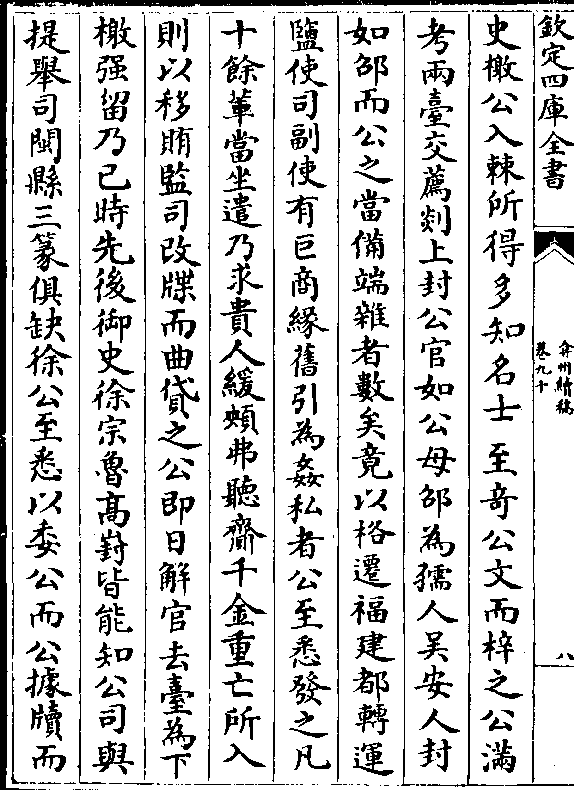 欽定四庫全書
弇州續稿
卷九十
八
史檄公入棘所得多知名士至竒公文而梓之公滿
考兩臺交薦剡上封公官如公母邵為孺人吴安人封
如邵而公之當備端雜者數矣竟以格遷福建都轉運
鹽使司副使有巨商緣舊引為姦私者公至悉發之凡
十餘軰當坐遣乃求貴人緩頰弗聽齎千金重亡所入
則以移賄監司改牒而曲貸之公即日解官去臺為下
檄强留乃已時先後御史徐宗魯髙對皆能知公司與
提舉司閩縣三篆俱缺徐公至悉以委公而公據牘而